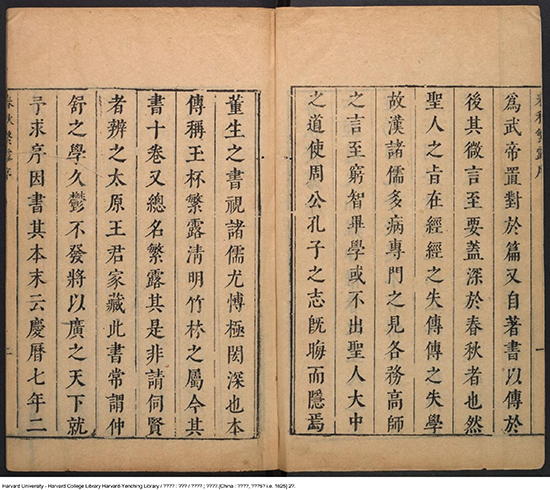 春秋繁露序
爲武帝置對於篇又自著書以傳於
後其微言至要蓋深於春秋者也然
聖人之㫖在經經之失傳傳之失學
故漢諸儒多病專門之見各務高師
之言至窮智畢學或不出聖人大中
之道使周公孔子之志旣晦而隱焉
董生之書視諸儒尤愽極閎深也本
傳稱王杯繁露清明竹林之屬今其
書十卷又總名繁露其是非請伺賢
者辨之太原王君家藏此書常謂仲
舒之學久鬱不發將以廣之天下就
予求序因書其本末云慶曆七年二
春秋繁露序
Harvard University - Harvard College Library Harvard-Yenching Library / ???? : ??? / ???? ; ???? [China : ????, ???5? i.e. 1625] 2?.